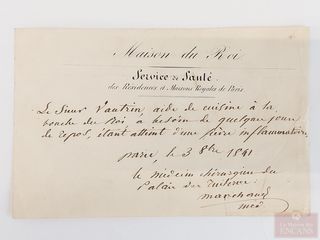 Maison du Roi
Service de Santé
des Résidences & Maisons Royales de Paris
Le Sieur Vautrin aide de cuisine à la
bouche du Roi a besoin de quelques jours
de repos, étant atteint d'une fièvre inflammatoire
paris, le 3 8bre 1841
le médecin chirurgien du
Palais des Tuileries
La Maison des
ENCANS